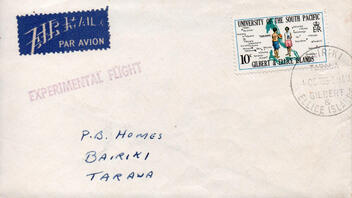 AIR MAIL
PAR AVION
EXPERIMENTAL FLIGHT
UNIVERSITY OF THE SOUTH PACIFIC
10c
GILBERT & ELLICE ISLANDS
BAIRIKI
TARAWA
GILBERT &
ELLICE ISLAND
P.B. HOMES
BAIRIKI
TARAWA